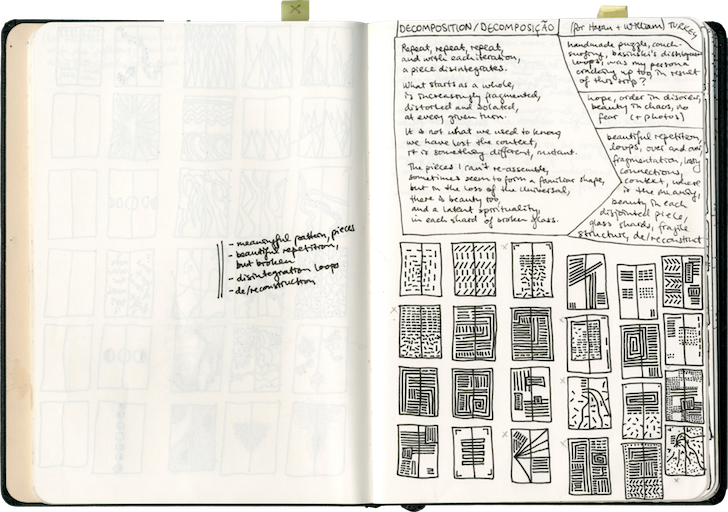 x
- meaningful pattern, pieces
- beautiful repetition,
but broken
- disintegration loops
- de/reconstruction
DECOMPOSITION/DECOMPOSIÇÃO
(for Hasan + William) TURKEY
Repeat, repeat, repeat,
and with each iteration,
a piece disintegrates.
What starts as a whole,
is increasingly fragmented,
distorted and isolated,
at every given turn.
It is not what we used to know
we have lost the context,
it is something different, mutant.
The pieces I can't re-assemble,
sometimes seem to form a familiar shape,
but in the loss of the universal,
there is beauty too,
and a latent spirituality,
in each shard of broken glass.
handmade puzzle, couch-
surfing, basinski's
loops, was my persona
cracking up too in result
of this trip?
hope, order in disorder,
beauty in chaos, no
fear (+ photos)
beautiful repetition
loops, over and over,
fragmentation,
connections,
context, where
is the meaning,
beauty in each
disjointed piece,
glass shards, fragile
structure, de/reconstruct